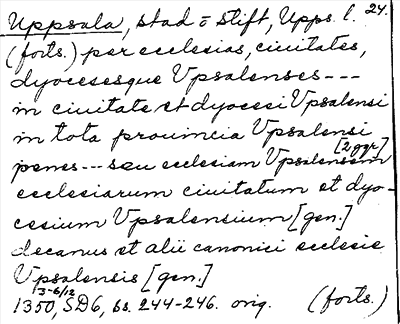 Uppsala, stad o stift, Upps. l. 24.
(forts.) per ecclesias, ciuitates,
dyocesesque Vpsalenses ---
in ciuitate et dyocesi Vpsalensi
in tota prouincia Vpsalensi
[2 ggr]
penes --- seu ecclesiam Vpsalensem
ecclesiarum ciuitatum et dyo-
cesium Vpsalensium [gen.]
decanus et alii canonici ecclesie
Vpsalensis [gen.]
3-6/12
1350, SD6, ss. 244-246. orig. (forts.)